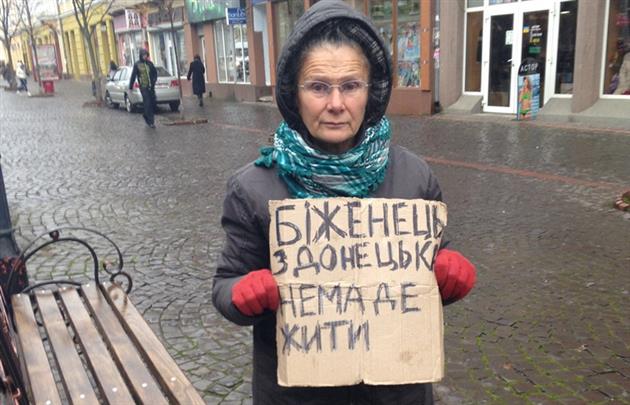 БІЖЕНЕЦЬ
З ДОНЕЦЬКА
НЕМА ДЕ
ЖИТИ
АСТОР